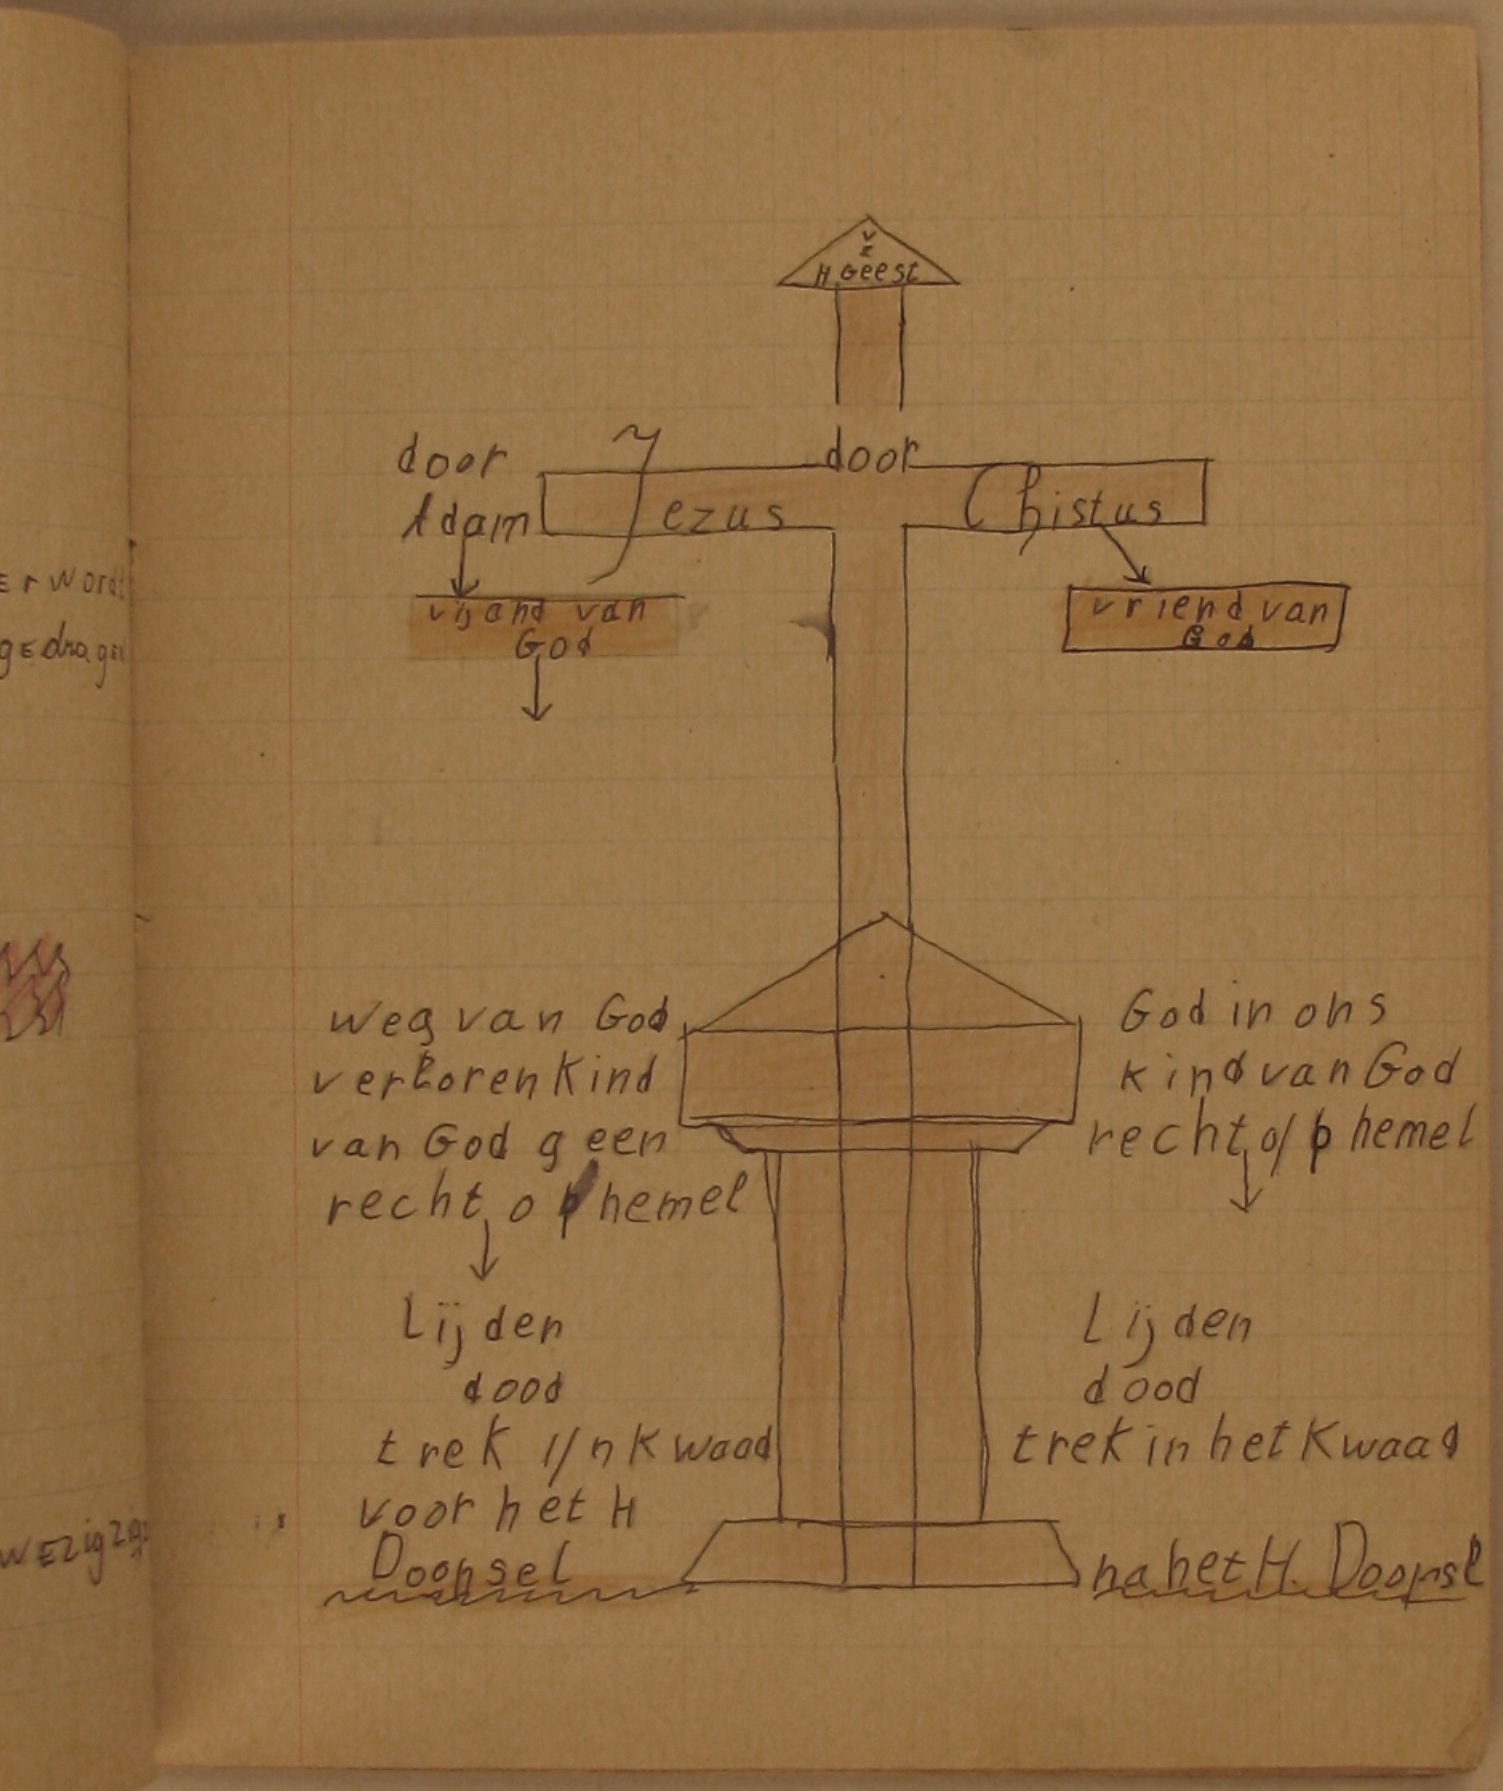 V
Z
H Geest
door
door
Adam
Jezus Chistus
vijand van
God
vriend van
God
weg van God
verloren kind
van God geen
recht op hemel
God in ons
kind van God
recht op hemel
Lijden
dood
trek in kwaad
voor het H
Doopsel
Lijden
dood
trek in het kwaad
na het H. Doopsl
Er wordt
gedragen